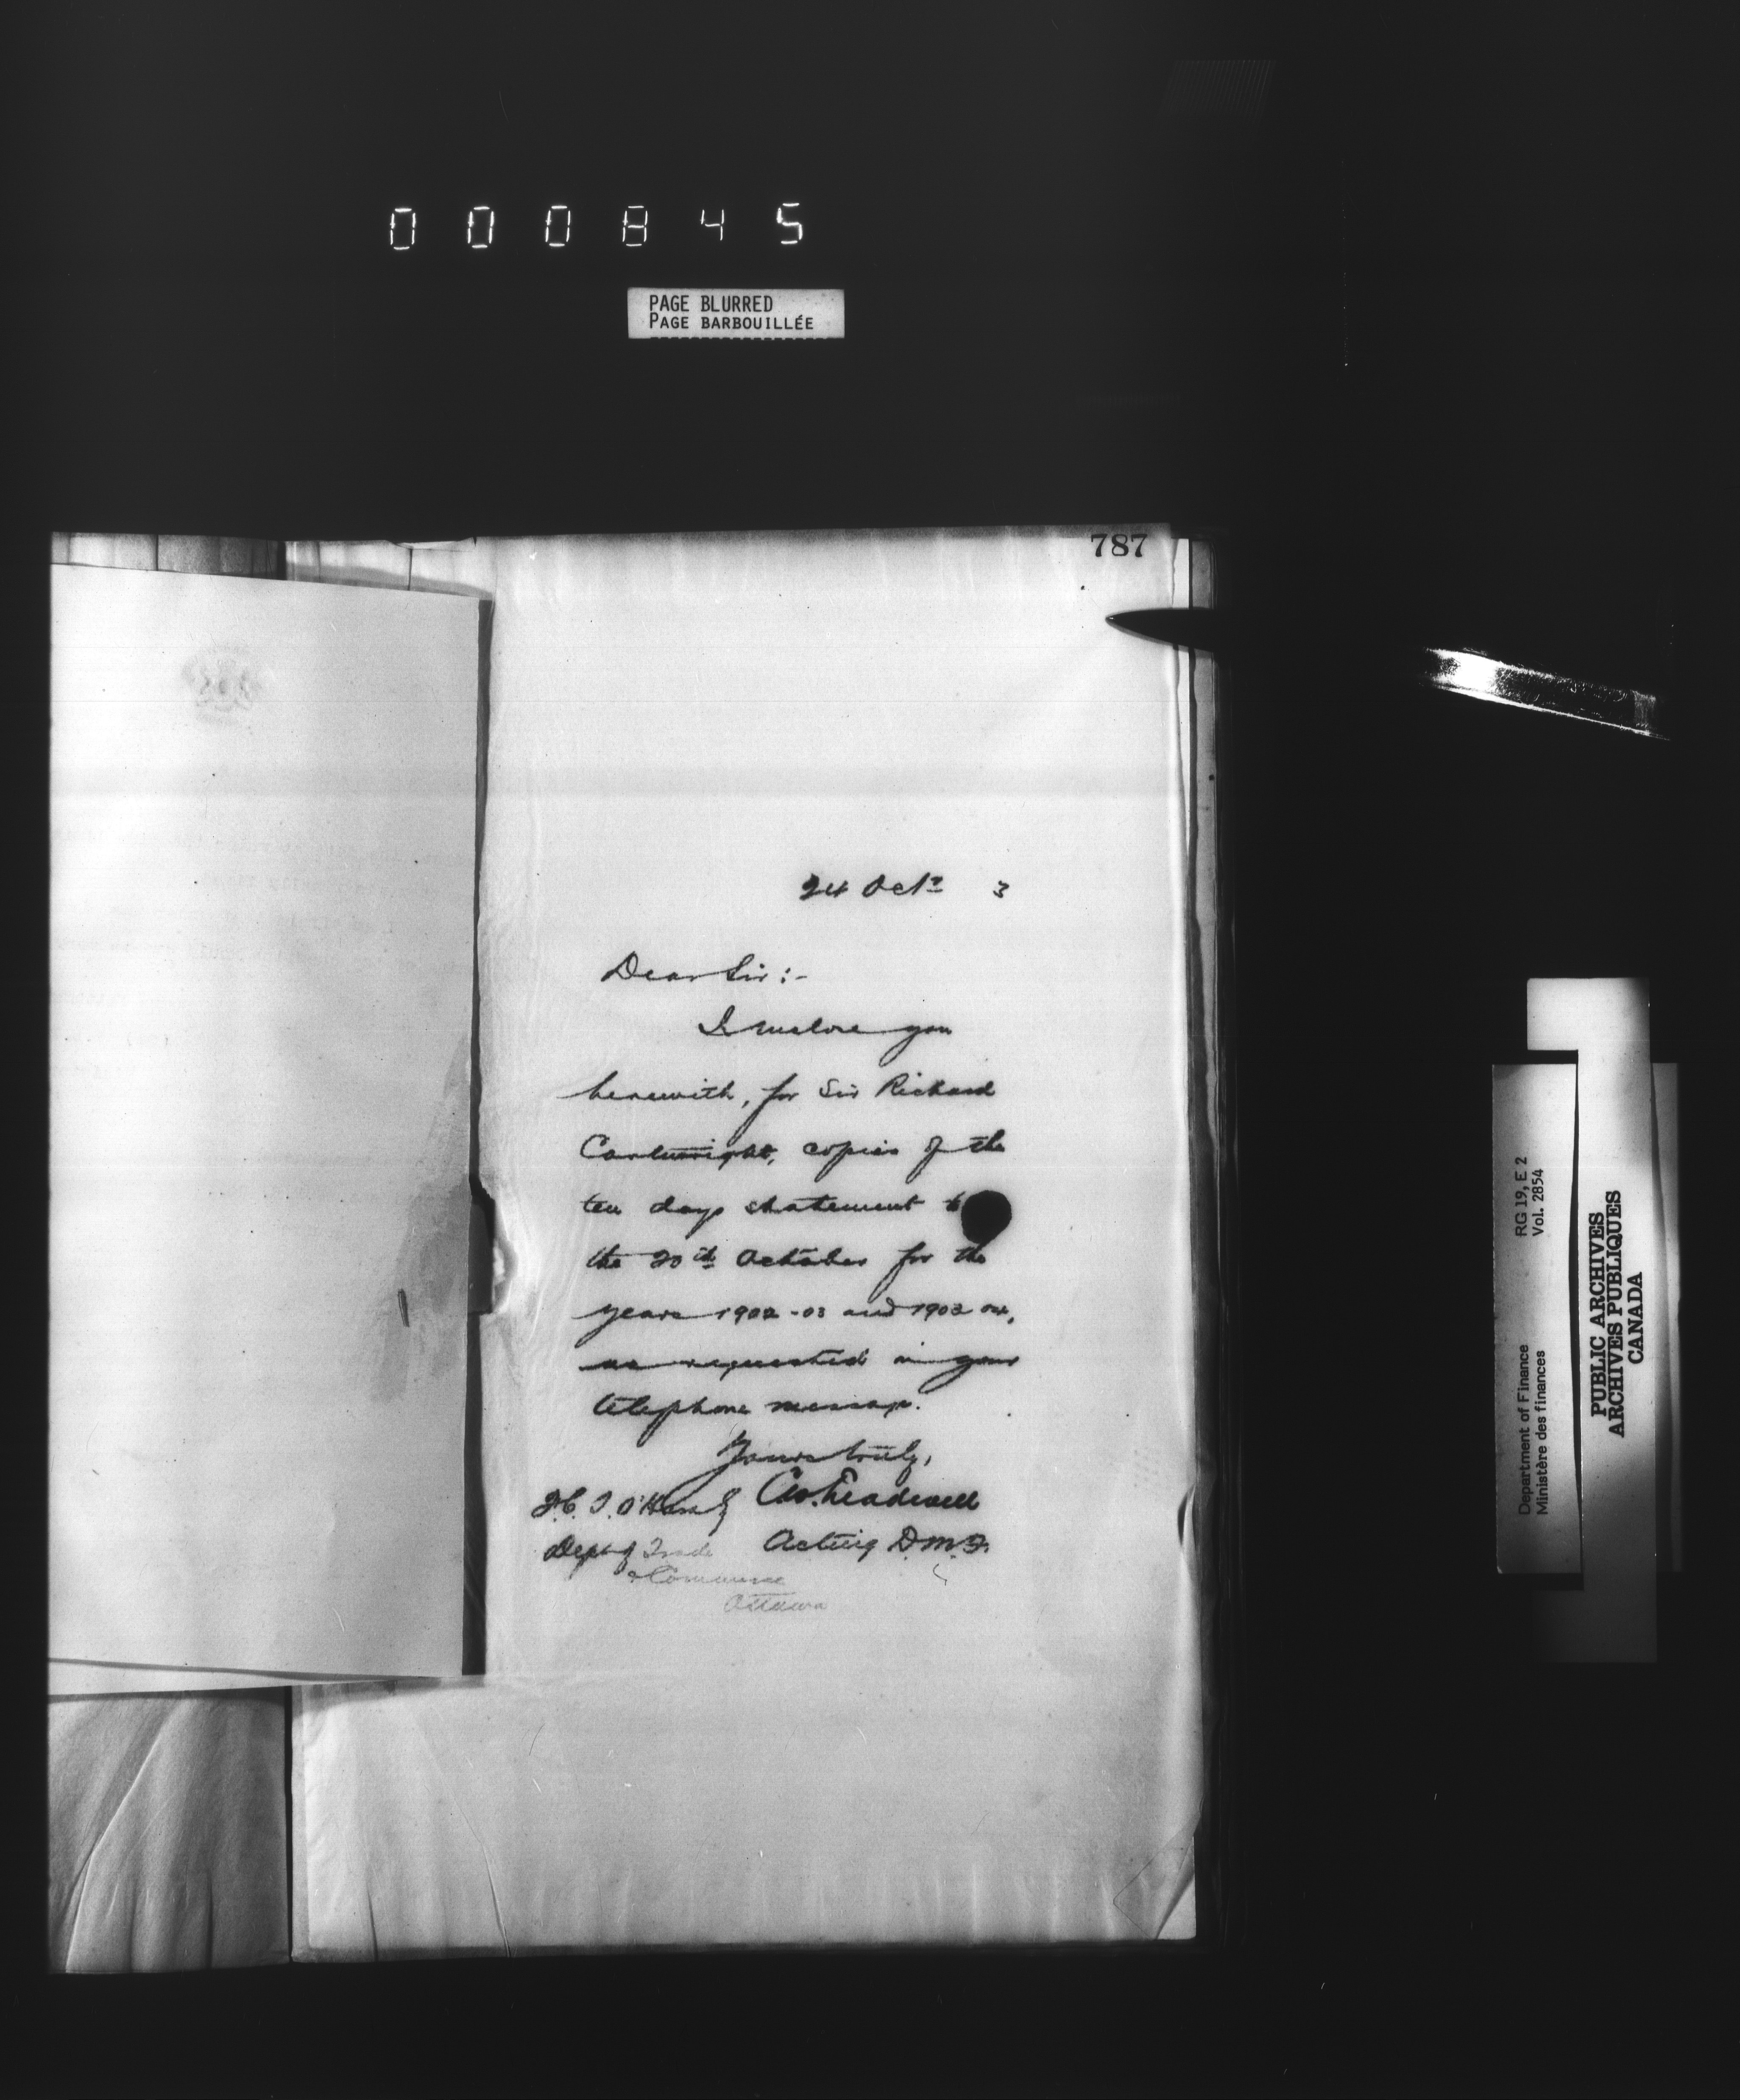 000845
PAGE BLURRED
PAGE BARBOUILLÉE
787
24 Octr 3
Dear Sir:-
I enclose you
herewith, for Sir Richard
Cartwright, copies of the
ten days statement to
the 20th October for the
years 1902-03 and 1903
as requested in your
telephone message.
Yours truly,
F.C.T. O'Hara
Dept of Trade
& Commerce
Ottawa
Treadwell
Acting D.M.F.
RG 19, E 2
Vol. 2854
Department of Finance
Ministère des finances
PUBLIC ARCHIVES
ARCHIVES PUBLIQUES
CANADA